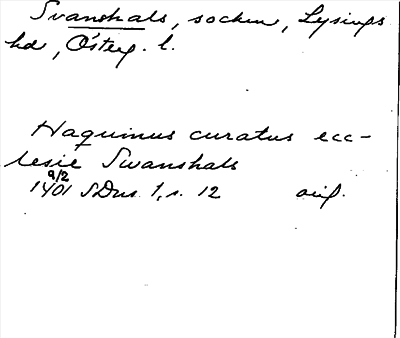 Svanshals, socken, Lysings
hd, Österg. l.
Haquinus curatus ecc-
lesie Swanshals
9/2
1401 SDns 1, s. 12 orig.